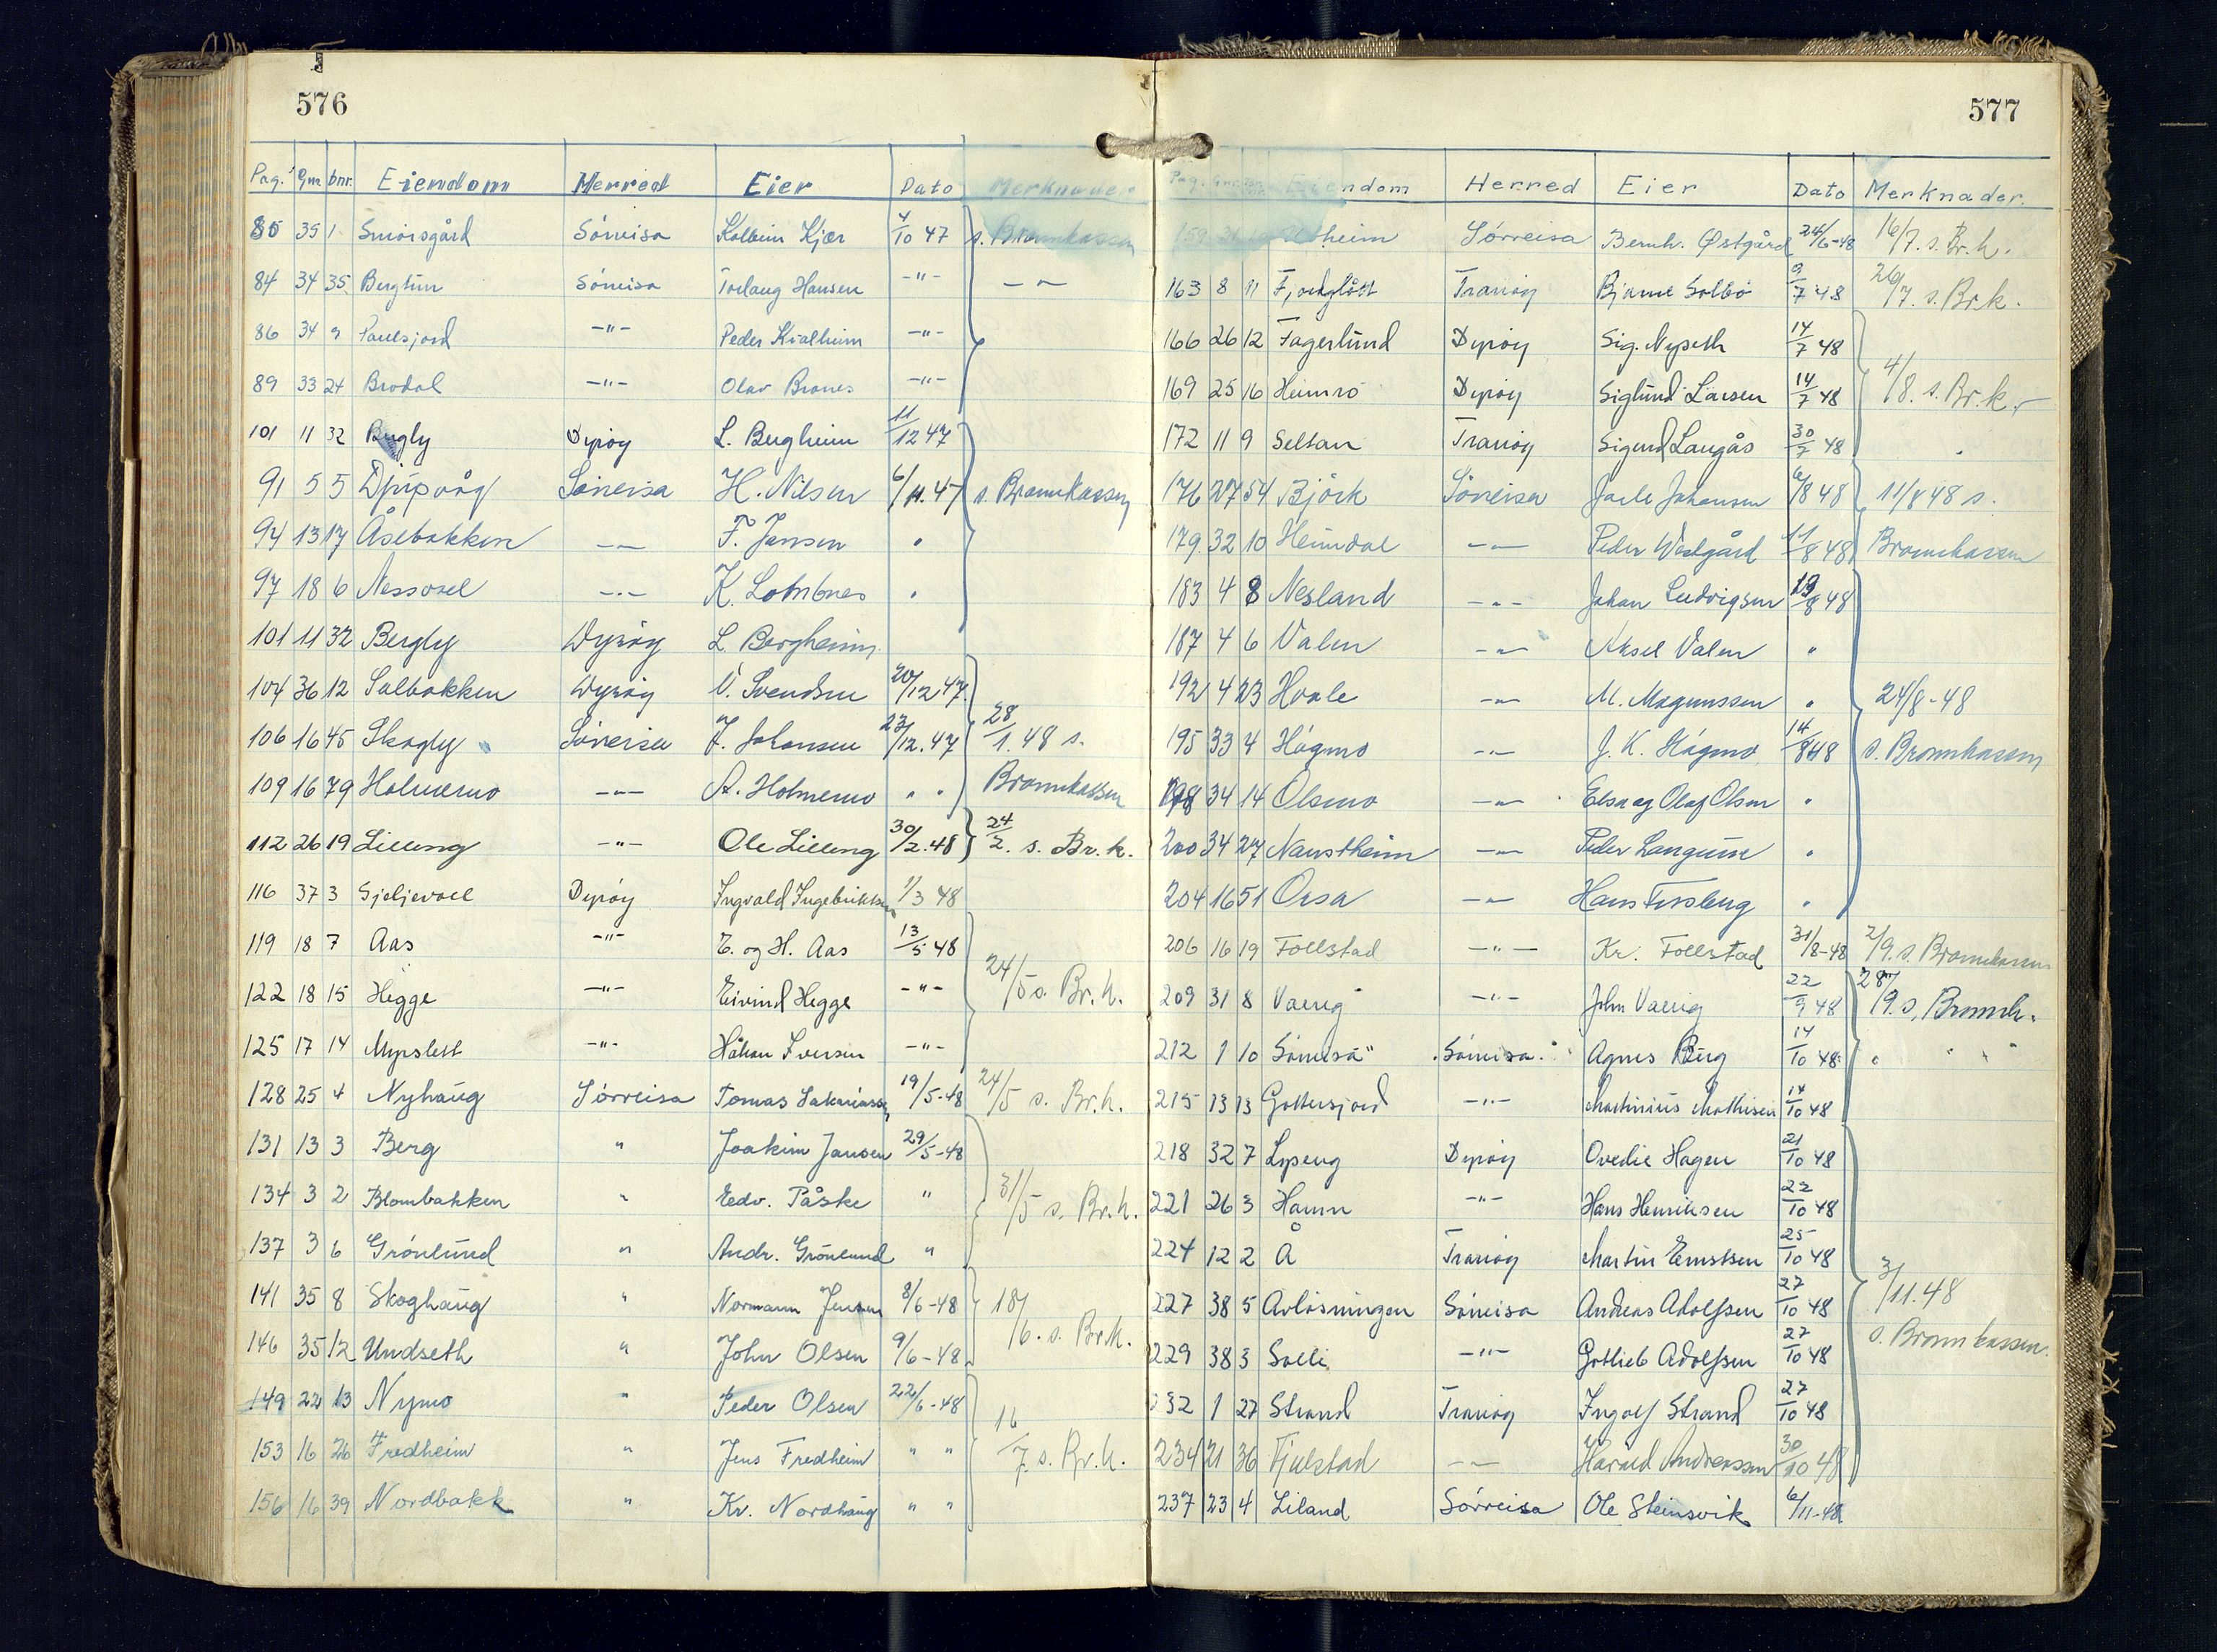 576
Pag. Gnr. bnr. Eiendom Herred Eier Dato Merknader
85 35 1 Smørsgård Sørreisa Kolbein Kjær 4/10 47 s. Brannkassen
84 34 35 Bergtun Sørreisa Torlaug Hansen -"- -"-
86 34 9 Paulsjord -"- Peder Kvalheim -"-
89 33 24 Brodal -"- Olav Branes -"-
101 11 32 Bergly Dyrøy L. Bergheim 11/12 47
91 5 5 Djupvåg Sørreisa H. Nilsen 6/11.47 s. Brannkassen
94 13 17 Åsebakken -"- F. Jansen "
97 18 6 Nessosel -"- K. Lambnes "
101 11 32 Bergly Dyrøy L. Bergheim
104 36 12 Solbakken Dyrøy V. Svendsen 20/12 47.
106 16 45 Skogly Sørreisa J. Johansen 23/12.47 28/1.48 s.
109 16 79 Holmemo -"- A. Holmemo " " Brannkassen
112 26 19 Lilleng -"- Ole Lilleng 30/2.48 24/2. s. Br.k.
116 37 3 Gjeljevoll Dyrøy Ingvald Ingebriktsen 1/3 48
119 18 7 Aas -"- E. og H. Aas 13/5 48
122 18 15 Hegge -"- Eivind Hegge -"- 24/5 s. Br.k.
125 17 14 Myrslett -"- Håkon Iversen -"-
128 25 4 Nyhaug Sørreisa Tomas Sakariassen 19/5-48 24/5 s. Br.k.
131 13 3 Berg " Joakim Jansen 29/5-48
134 3 2 Blombakken " Edv. Påske " 31/5 s. Br.k.
137 3 6 Grønlund " Andr. Grönlund "
141 35 8 Skoghaug " Normann Jensen 8/6-48 18/6. s. Br.k.
146 35 12 Undseth " John Olsen 9/6-48
149 22 13 Nymo " Peder Olsen 22/6-48
153 16 26 Fredheim " Jens Fredheim " " 16/7. s. Br.k.
156 16 39 Nordbakk " Kr. Nordhaug " "
577
Pag. Gnr. Eiendom Herred Eier Dato Merknader.
159 heim Sørreisa Bernh. Østgård 24/6-48 16/7. s. Br.k.
163 8 11 Fjordgløtt Tranøy Bjarne Solbø 9/7 48 26/7. s. Br.k.
166 26 12 Fagerlund Dyrøy Sig. Nyseth 14/7 48
169 25 16 Heimro Dyrøy Siglund Larsen 14/7 48 4/8. s. Br.k.
172 11 9 Seltan Tranøy Sigurd Laugås 30/7 48
176 27 54 Björk Sørreisa Jarle Johansen 6/8 48 11/8 48 s.
179 32 10 Heimdal -"- Peder Westgård 11/8 48 Brannkassen
183 4 8 Nesland -"- Johan Ludvigsen 13/8 48
187 4 6 Valen -"- Aksel Valen "
192 4 23 Hoale -"- M. Magnussen " 24/8-48
195 33 4 Høgmo -"- J. K. Høgmo 14/8 48 s. Brannkassen
198 34 14 Olsmo -"- Elsa og Olaf Olsen "
200 34 27 Naustheim -"- Peder Langnes "
204 16 51 Orsa -"- Hans Finsberg "
206 16 19 Follstad -"- Kr. Follstad 31/8-48 2/9. s. Brannkassen
209 31 8 Vareig -"- John Vareig 22/9 48 28/9. s. Brannk.
212 1 10 Sørreisa Sørreisa Agnes Berg 14/10 48 " " "
215 13 13 Gottersjord -"- Martinius Mathisen 14/10 48
218 32 7 Lyseng Dyrøy Ovedie Hagen 21/10 48
221 26 3 Hamn -"- Hans Henriksen 22/10 48
224 12 2 Å Tranøy Martin Ernstsen 25/10 48
227 38 5 Avløsningen Sørreisa Andreas Adolfsen 27/10 48 3/11.48
229 38 3 Solli -"- Gotlieb Adolfsen 27/10 48 s. Brannkassen.
232 1 27 Strand Tranøy Ingolf Strand 27/10 48
234 21 36 Fjelstad -"- Harald Andreassen 30/10 48
237 23 4 Liland Sørreisa Ole Steinsvik 6/11-48